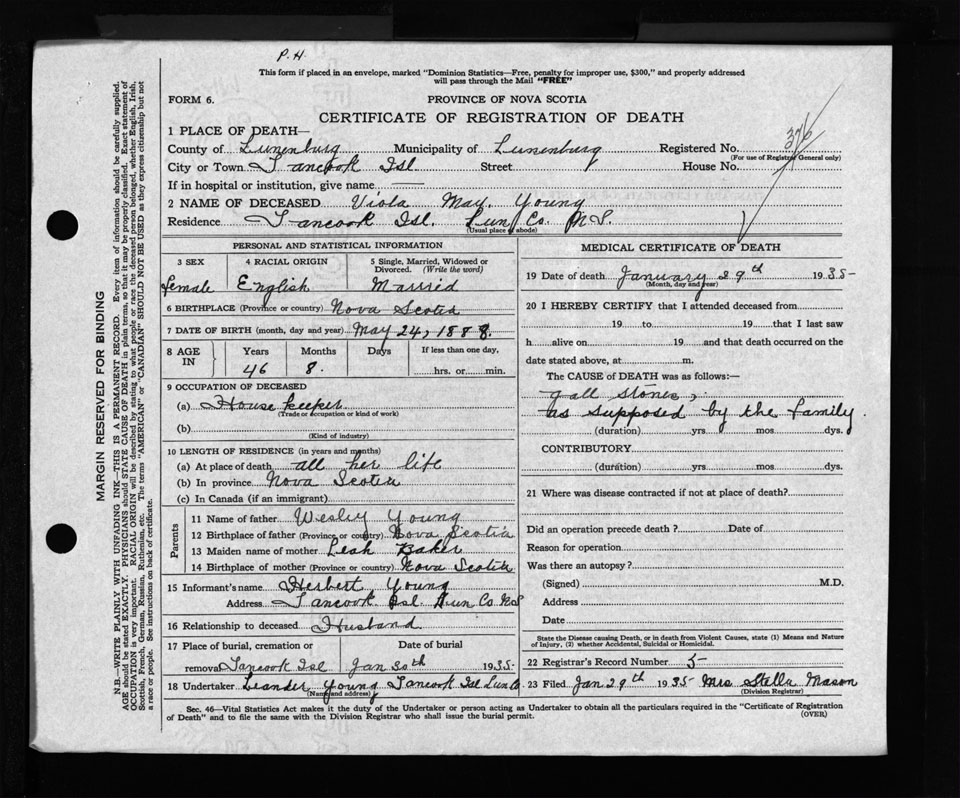 P.H.
This form if placed in an envelope, marked "Dominion Statistics—Free, penalty for improper use, $300," and properly addressed
will pass through the Mail "FREE"
FORM 6.
PROVINCE OF NOVA SCOTIA
CERTIFICATE OF REGISTRATION OF DEATH
376
1 PLACE OF DEATH—
County of Lunenburg Municipality of Lunenburg Registered No.
(For use of Registrar General only)
City or Town Tancook Isl Street House No.
If in hospital or institution, give name, —
2 NAME OF DECEASED Viola May. Young
Residence Tancook Isl. Lun. Co. N.S.
(Usual place of abode)
PERSONAL AND STATISTICAL INFORMATION
3 SEX
female
4 RACIAL ORIGIN
English
5 Single, Married, Widowed or
Divorced. (Write the word)
Married
6 BIRTHPLACE (Province or country) Nova Scotia
7 DATE OF BIRTH (month, day and year) May 24, 1888.
8 AGE
IN
Years
46
Months
8.
Days
If less than one day,
hrs. or min.
9 OCCUPATION OF DECEASED
(a) House keeper
(Trade or occupation or kind of work)
(b)
(Kind of industry)
10 LENGTH OF RESIDENCE (in years and months)
(a) At place of death all her life
(b) In province Nova Scotia
(c) In Canada (if an immigrant)
Parents
11 Name of father Wesley Young
12 Birthplace of father (Province or country) Nova Scotia
13 Maiden name of mother Leah Baker
14 Birthplace of mother (Province or country) Nova Scotia
15 Informant's name Herbert Young
Address Tancook Isl Lun Co. N.S
16 Relationship to deceased Husband
17 Place of burial, cremation or
removal Tancook Isl
Date of burial
Jan 30th 1935-
18 Undertaker Leander Young Tancook Isl Lun Co
(Name and address)
MEDICAL CERTIFICATE OF DEATH
19 Date of death January 29th 1935-
(Month, day and year)
20 I HEREBY CERTIFY that I attended deceased from
19 to 19 that I last saw
h alive on 19 and that death occurred on the
date stated above, at m.
The CAUSE of DEATH was as follows:—
gall stones,
as supposed by the family.
(duration) yrs. mos dys.
CONTRIBUTORY
(duration) yrs. mos. dys.
21 Where was disease contracted if not at place of death?
Did an operation precede death? Date of
Reason for operation
Was there an autopsy?
(Signed) M.D.
Address
Date
State the Disease causing Death, or in death from Violent Causes, state (1) Means and Nature
of Injury, (2) whether Accidental, Suicidal or Homicidal.
22 Registrar's Record Number 5-
23 Filed Jan 29th 1935 Mrs Stella Mason
(Division Registrar)
Sec. 46—Vital Statistics Act makes it the duty of the Undertaker or person acting as Undertaker to obtain all the particulars required in the "Certificate of Registration
of Death" and to file the same with the Division Registrar who shall issue the burial permit.
(OVER)
MARGIN RESERVED FOR BINDING
N.B.—WRITE PLAINLY WITH UNFADING INK—THIS IS A PERMANENT RECORD. Every item of information should be carefully supplied.
AGE should be stated EXACTLY. PHYSICIANS should STATE CAUSE OF DEATH in plain terms, so that it may be properly classified. Exact statement of
OCCUPATION is very important. RACIAL ORIGIN will be described by stating to what people or race the deceased person belonged, whether English, Irish,
Scottish, French, German, Russian, Ruthenian, etc. The terms "AMERICAN" or "CANADIAN" SHOULD NOT BE USED as they express citizenship but not
a race or people. See instructions on back of certificate.